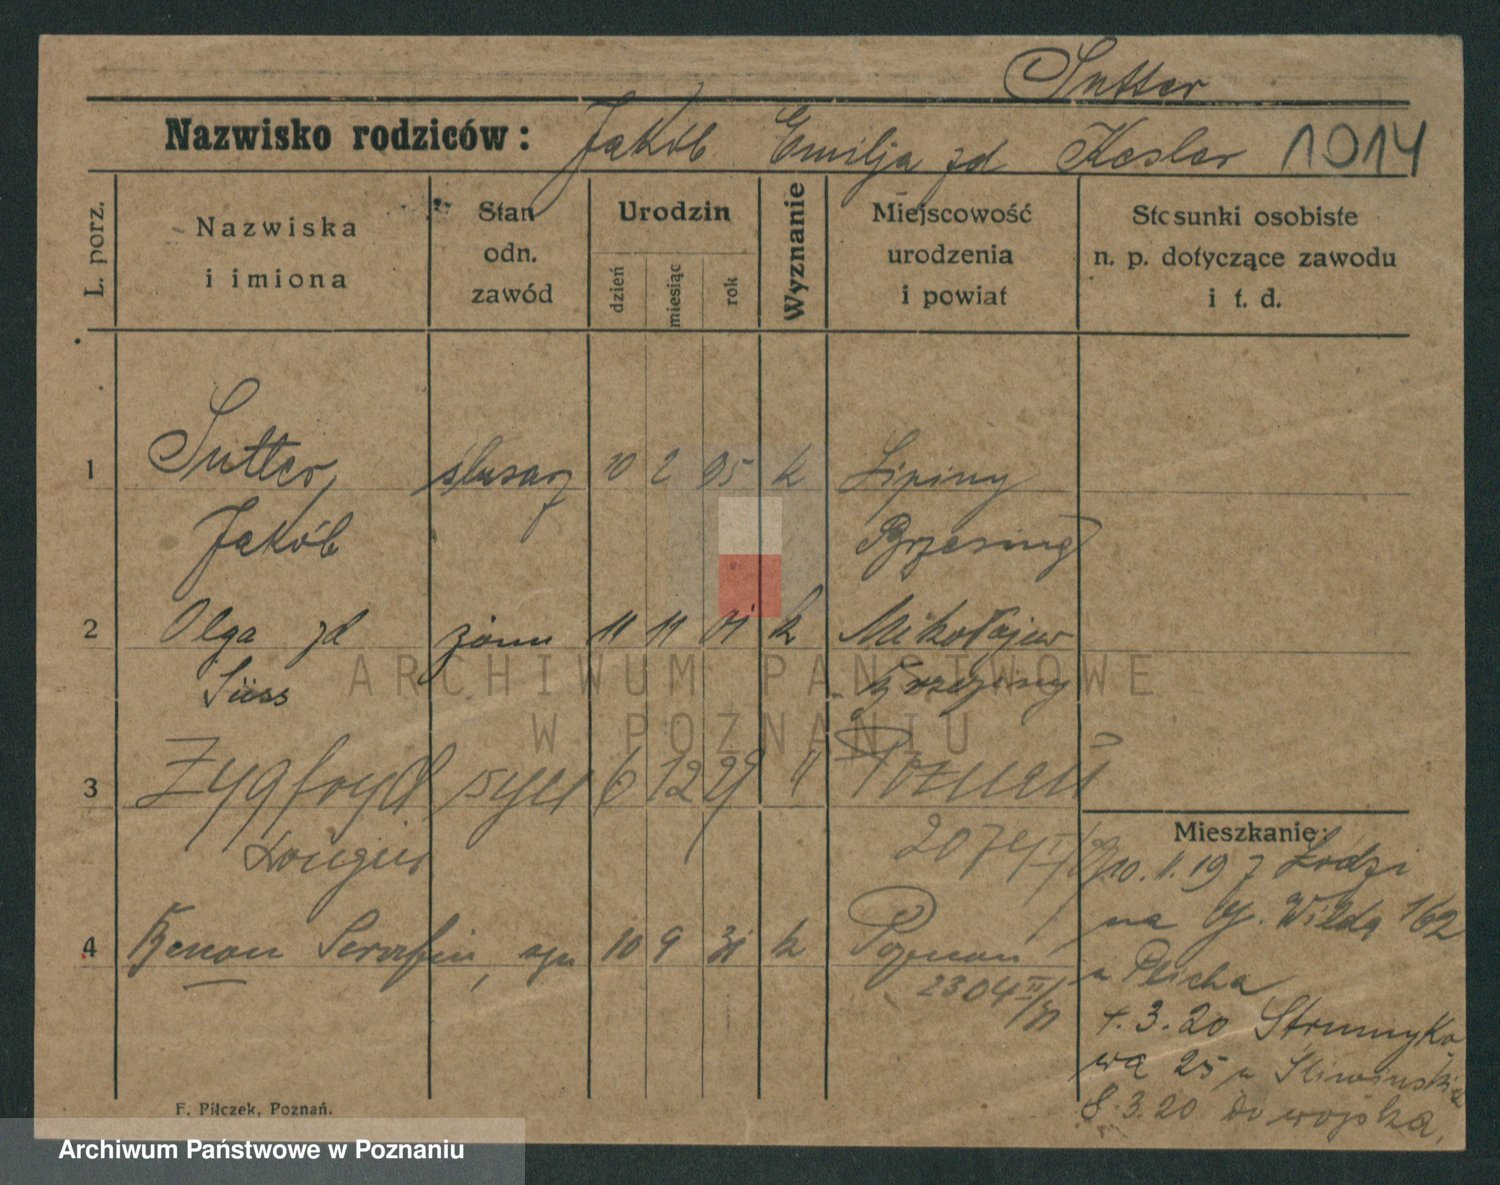 Sutter
Nazwisko rodziców: Jakób Emilja zd Kesler 1014
L. porz.
Nazwiska
i imiona
Stan
odn.
zawód
Urodzin
dzień
miesiąc
rok
Wyznanie
Miejscowość
urodzenia
i powiat
Stosunki osobiste
n. p. dotyczące zawodu
i t. d.
1 Sutter, slusarz 10 2 95 k Lipiny
Jakób Brzesiny
2 Olga zd żona 11 11 01 k Mikołajew
Süss Brzeziny
3 Zygfryd syn 6 12 29 Poznań
2074
4 Benon Serafin, syn 10 9 31 k Poznan
2304 II/31
Mieszkanie:
10.11.19 z Łodzi
na G. Wilda 162
u Plicha
4.3.20 Strumyko
wa 25 u Sliwinski
8.3.20 do wojska.
F. Pilczek, Poznań.
ARCHIWUM PAŃSTWOWE
W POZNANIU
Archiwum Państwowe w Poznaniu